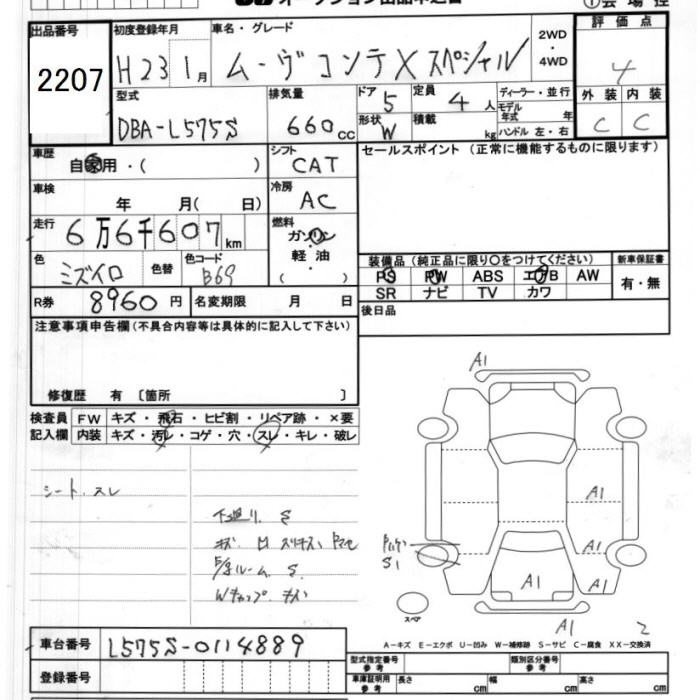 オークション出品申込書
①会場控
出品番号 2207
初度登録年月 H23 1月
車名・グレード ムーヴコンテ X スペシャル
2WD・4WD
評価点 4
型式 DBA-L575S
排気量 660cc
ドア 5 形状 W
定員 4人 積載 kg
ディーラー・並行
モデル年式 年
ハンドル 左・右
外装 内装
C C
車歴 自家用・( )
シフト CAT
セールスポイント(正常に機能するものに限ります)
車検 年 月( 日)
冷房 AC
走行 6万6千607km
燃料 ガソリン 軽油 ・( )
色 ミズイロ 色替 色コード B69
装備品(純正品に限り○をつけてください) 新車保証書
PS PW ABS エアB AW 有・無
SR ナビ TV カワ
R券 8960円 名変期限 月 日
後日品
注意事項申告欄(不具合内容等は具体的に記入して下さい)
修復歴 有 〔箇所 〕
検査員 FW キズ・飛石・ヒビ割・リペア跡・×要
記入欄 内装 キズ・汚レ・コゲ・穴・スレ・キレ・破レ
A1
シート、スレ
下廻り、S
A1
A1
S1
ルーム S
A1 A1
Wキャップ キズ
スペア
A1 2
A-キズ E-エクボ U-凹み W-補修跡 S-サビ C-腐食 XX-交換済
車台番号 L575S-0114889
型式指定番号 参考 類別区分番号 参考
登録番号
車庫証明用 参考 長さ cm 幅 cm 高さ cm